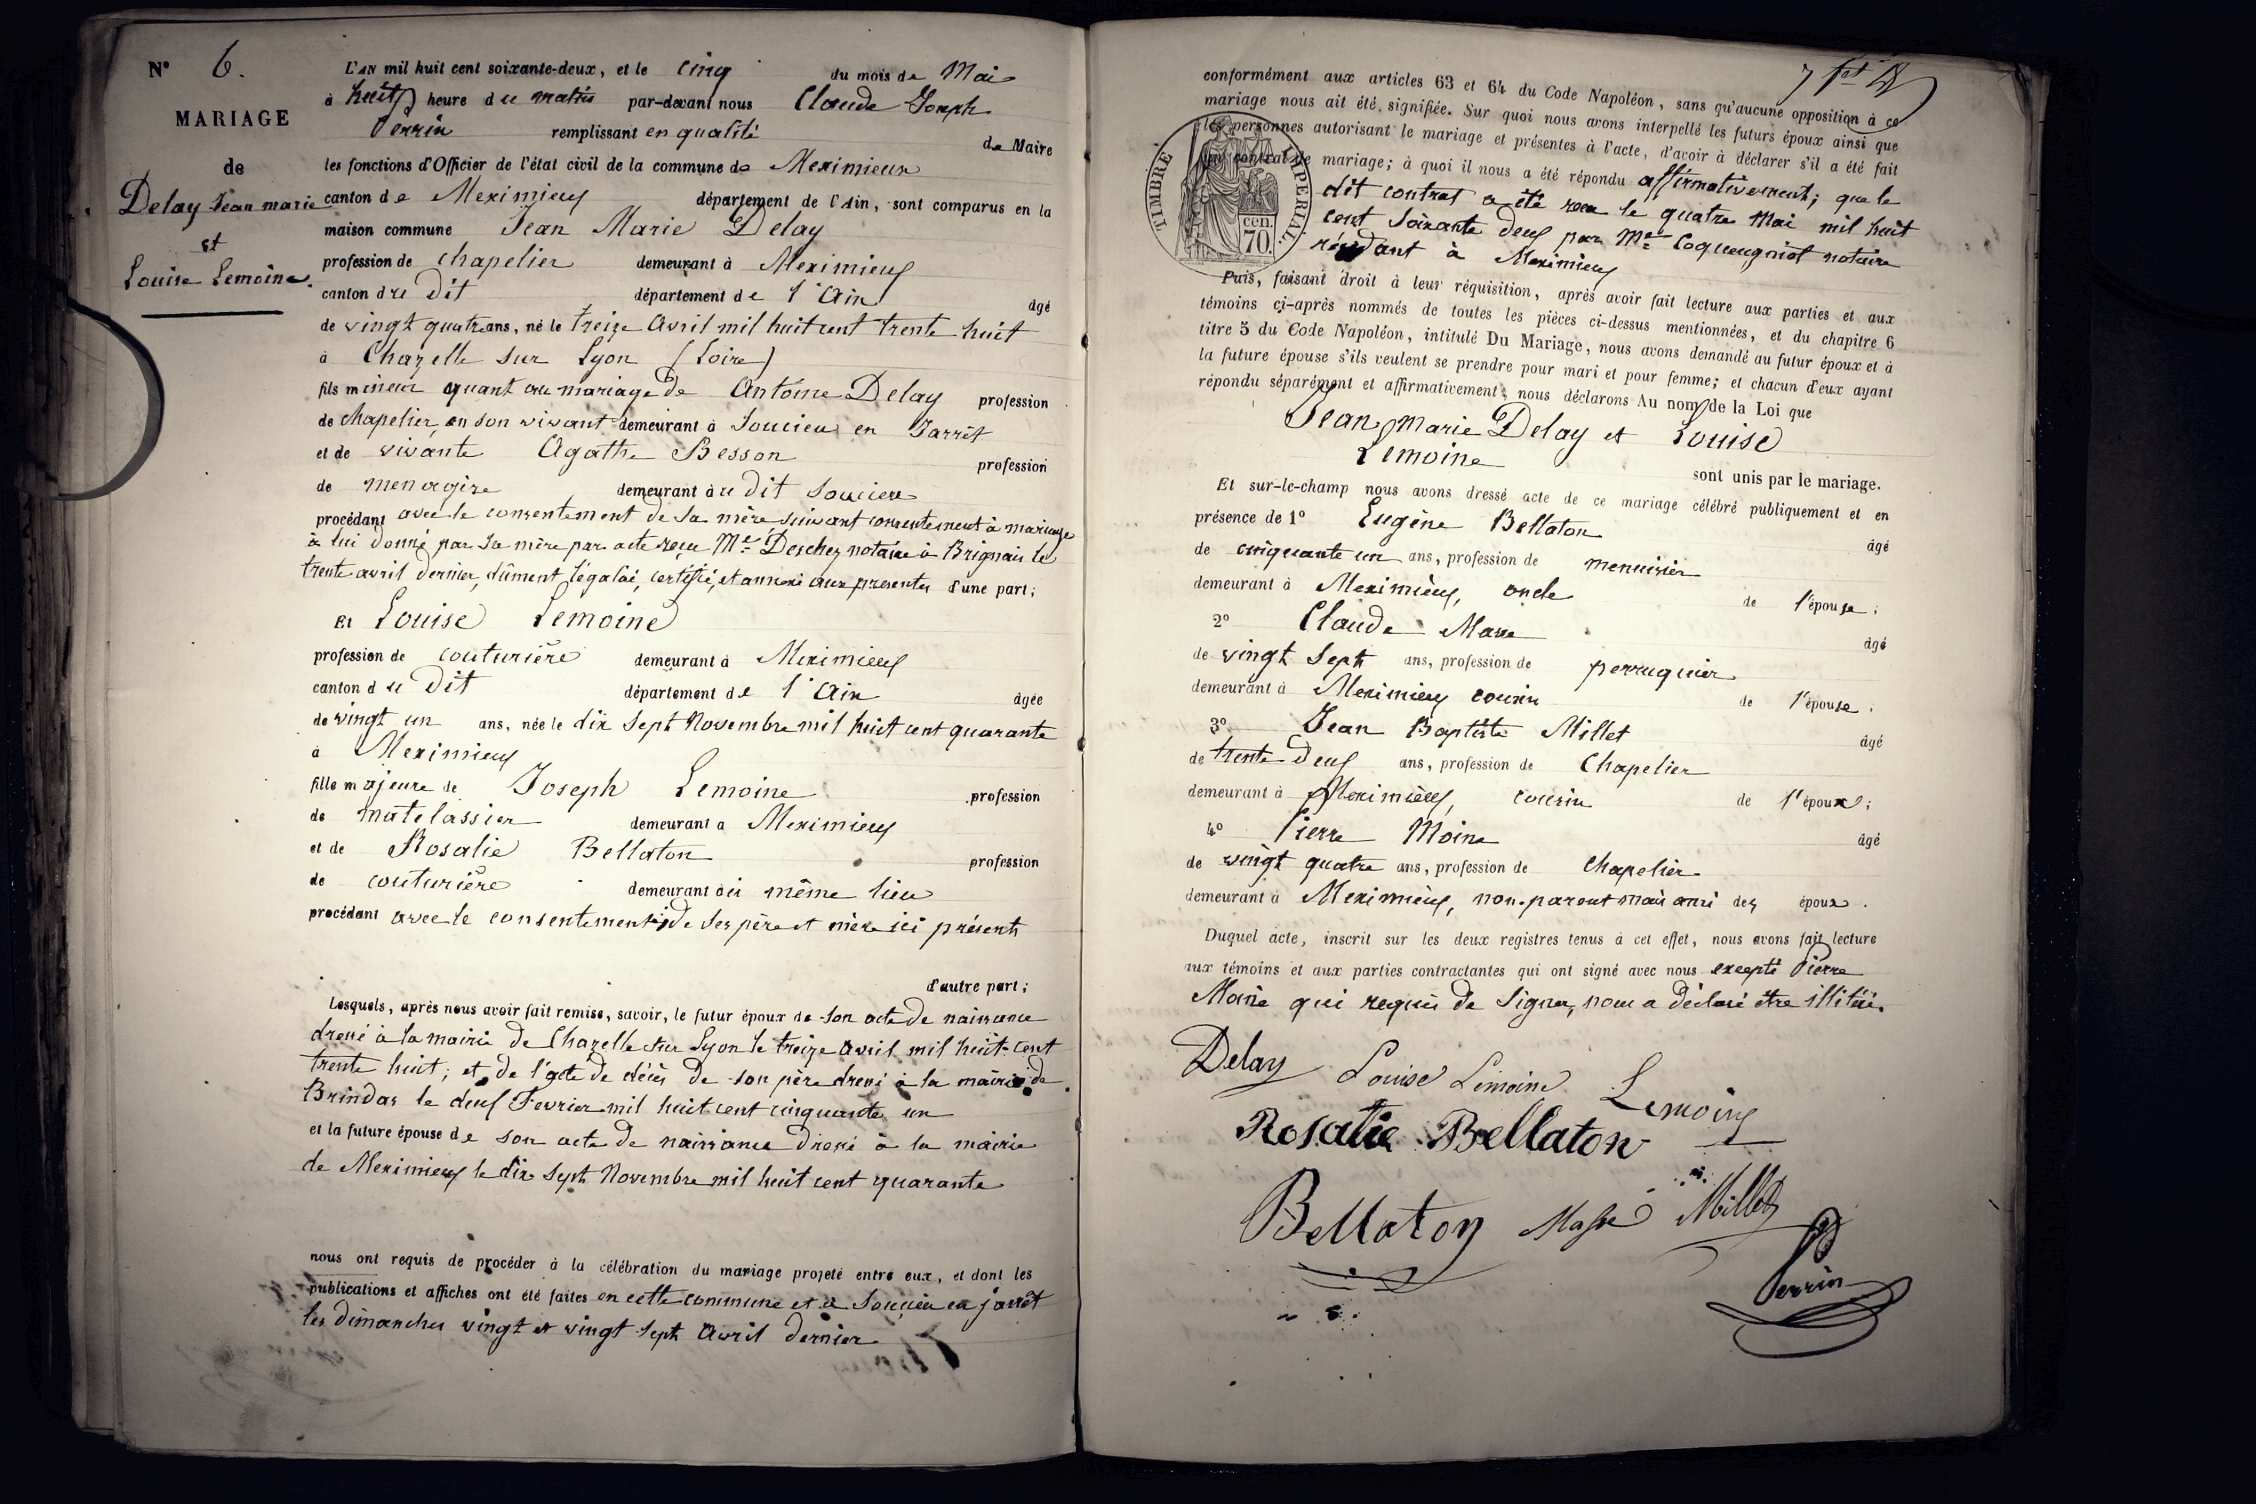 N° 6.
MARIAGE
de
Delay Jean marie
et
Louise Lemoine.
L'AN mil huit cent soixante-deux, et le cinq du mois de Mai
à huit heure du matin par-devant nous Claude Joseph
Perrin remplissant en qualité de Maire
les fonctions d'Officier de l'état civil de la commune de Meximieux
canton de Meximieux département de l'Ain, sont comparus en la
maison commune Jean Marie Delay
profession de chapelier demeurant à Meximieux
canton du dit département de l'Ain âgé
de vingt quatre ans, né le treize Avril mil huit cent trente huit
à Chazelle sur Lyon (Loire)
fils mineur quant au mariage de Antoine Delay profession
de chapelier, en son vivant demeurant à Soucieu en Jarret
et de vivante Agathe Besson profession
de menagère demeurant au dit Soucieu
procédant avec le consentement de sa mère suivant consentement à mariage
à lui donné par sa mère par acte reçu Me Deschez notaire à Brignais le
trente avril dernier, dûment légalisé, certifié, et annexé aux presentes d'une part;
Et Louise Lemoine
profession de couturière demeurant à Meximieux
canton du dit département de l'Ain âgée
de vingt un ans, née le dix sept Novembre mil huit cent quarante
à Meximieux
fille majeure de Joseph Lemoine profession
de matelassier demeurant à Meximieux
et de Rosalie Bellaton profession
de couturière demeurant au même lieu
procédant avec le consentement de ses père et mère ici présents
d'autre part;
Lesquels, après nous avoir fait remise, savoir, le futur époux de son acte de naissance
dressé à la mairie de Chazelle sur Lyon le treize Avril mil huit-cent
trente huit; et de l'acte de décès de son père dressé à la mairie de
Brindas le deux Fevrier mil huit cent cinquante un
et la future épouse de son acte de naissance dressé à la mairie
de Meximieux le dix sept Novembre mil huit cent quarante
nous ont requis de procéder à la célébration du mariage projeté entre eux, et dont les
publications et affiches ont été faites en cette commune et à Soucieu en jarrêt
les dimanches vingt et vingt sept Avril dernier
conformément aux articles 63 et 64 du Code Napoléon, sans qu'aucune opposition à ce
mariage nous ait été signifiée. Sur quoi nous avons interpellé les futurs époux ainsi que
les personnes autorisant le mariage et présentes à l'acte, d'avoir à déclarer s'il a été fait
un contrat de mariage; à quoi il nous a été répondu affirmativement; que le
TIMBRE IMPERIAL.
70. cen.
dit contrat a été reçu le quatre Mai mil huit
cent soixante deux par Me Coqueugniot notaire
résidant à Meximieux
Puis, faisant droit à leur réquisition, après avoir fait lecture aux parties et aux
témoins ci-après nommés de toutes les pièces ci-dessus mentionnées, et du chapitre 6
titre 5 du Code Napoléon, intitulé Du Mariage, nous avons demandé au futur époux et à
la future épouse s'ils veulent se prendre pour mari et pour femme; et chacun d'eux ayant
répondu séparément et affirmativement, nous déclarons Au nom de la Loi que
Jean Marie Delay et Louise
Lemoine
sont unis par le mariage.
Et sur-le-champ nous avons dressé acte de ce mariage célébré publiquement et en
présence de 1° Eugène Bellaton âgé
de cinquante un ans, profession de menuisier
demeurant à Meximieux, oncle de l'épouse;
2° Claude Masse âgé
de vingt sept ans, profession de perruquier
demeurant à Meximieux cousin de l'épouse.
3° Jean Baptiste Millet âgé
de trente deux ans, profession de Chapelier
demeurant à Meximieux, cousin de l'époux;
4° Pierre Moine âgé
de vingt quatre ans, profession de Chapelier
demeurant à Meximieux, non-parent mais ami des époux.
Duquel acte, inscrit sur les deux registres tenus à cet effet, nous avons fait lecture
aux témoins et aux parties contractantes qui ont signé avec nous excepté Pierre
Moine qui requis de signer, nous a déclaré être illitéré.
Delay Louise Lemoine Lemoine
Rosalie Bellaton
Bellaton Masse Millet
Perrin